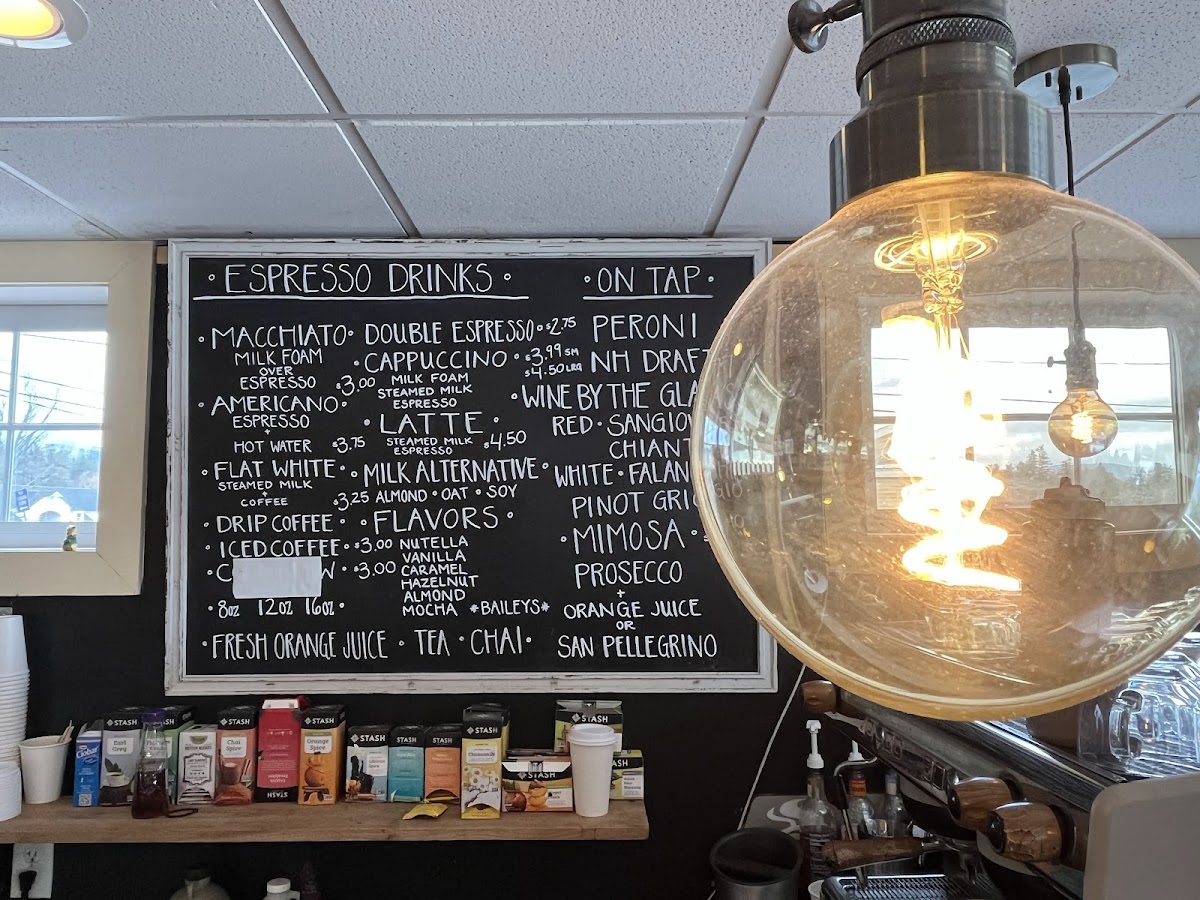 ESPRESSO DRINKS
MACCHIATO
MILK FOAM
OVER
ESPRESSO
$3.00
AMERICANO
ESPRESSO
+
HOT WATER $3.75
FLAT WHITE
STEAMED MILK
+
COFFEE $3.25
DRIP COFFEE
ICED COFFEE $3.00
$3.00
8oz 12oz 16oz
DOUBLE ESPRESSO $2.75
CAPPUCCINO $3.99 SM
$4.50 LRG
MILK FOAM
STEAMED MILK
ESPRESSO
LATTE
STEAMED MILK
ESPRESSO $4.50
MILK ALTERNATIVE
ALMOND • OAT • SOY
FLAVORS
NUTELLA
VANILLA
CARAMEL
HAZELNUT
ALMOND
MOCHA *BAILEYS*
FRESH ORANGE JUICE • TEA • CHAI
ON TAP
PERONI
NH DRAFT
WINE BY THE GLA
RED • SANGIOV
CHIANT
WHITE • FALAN
PINOT GRIGIO
MIMOSA
PROSECCO
+
ORANGE JUICE
OR
SAN PELLEGRINO
STASH
Earl
Grey
STASH
Chai
Spice
STASH
STASH
Orange
Spice
STASH
STASH
STASH
STASH
Chamomile
STASH
STASH
STASH